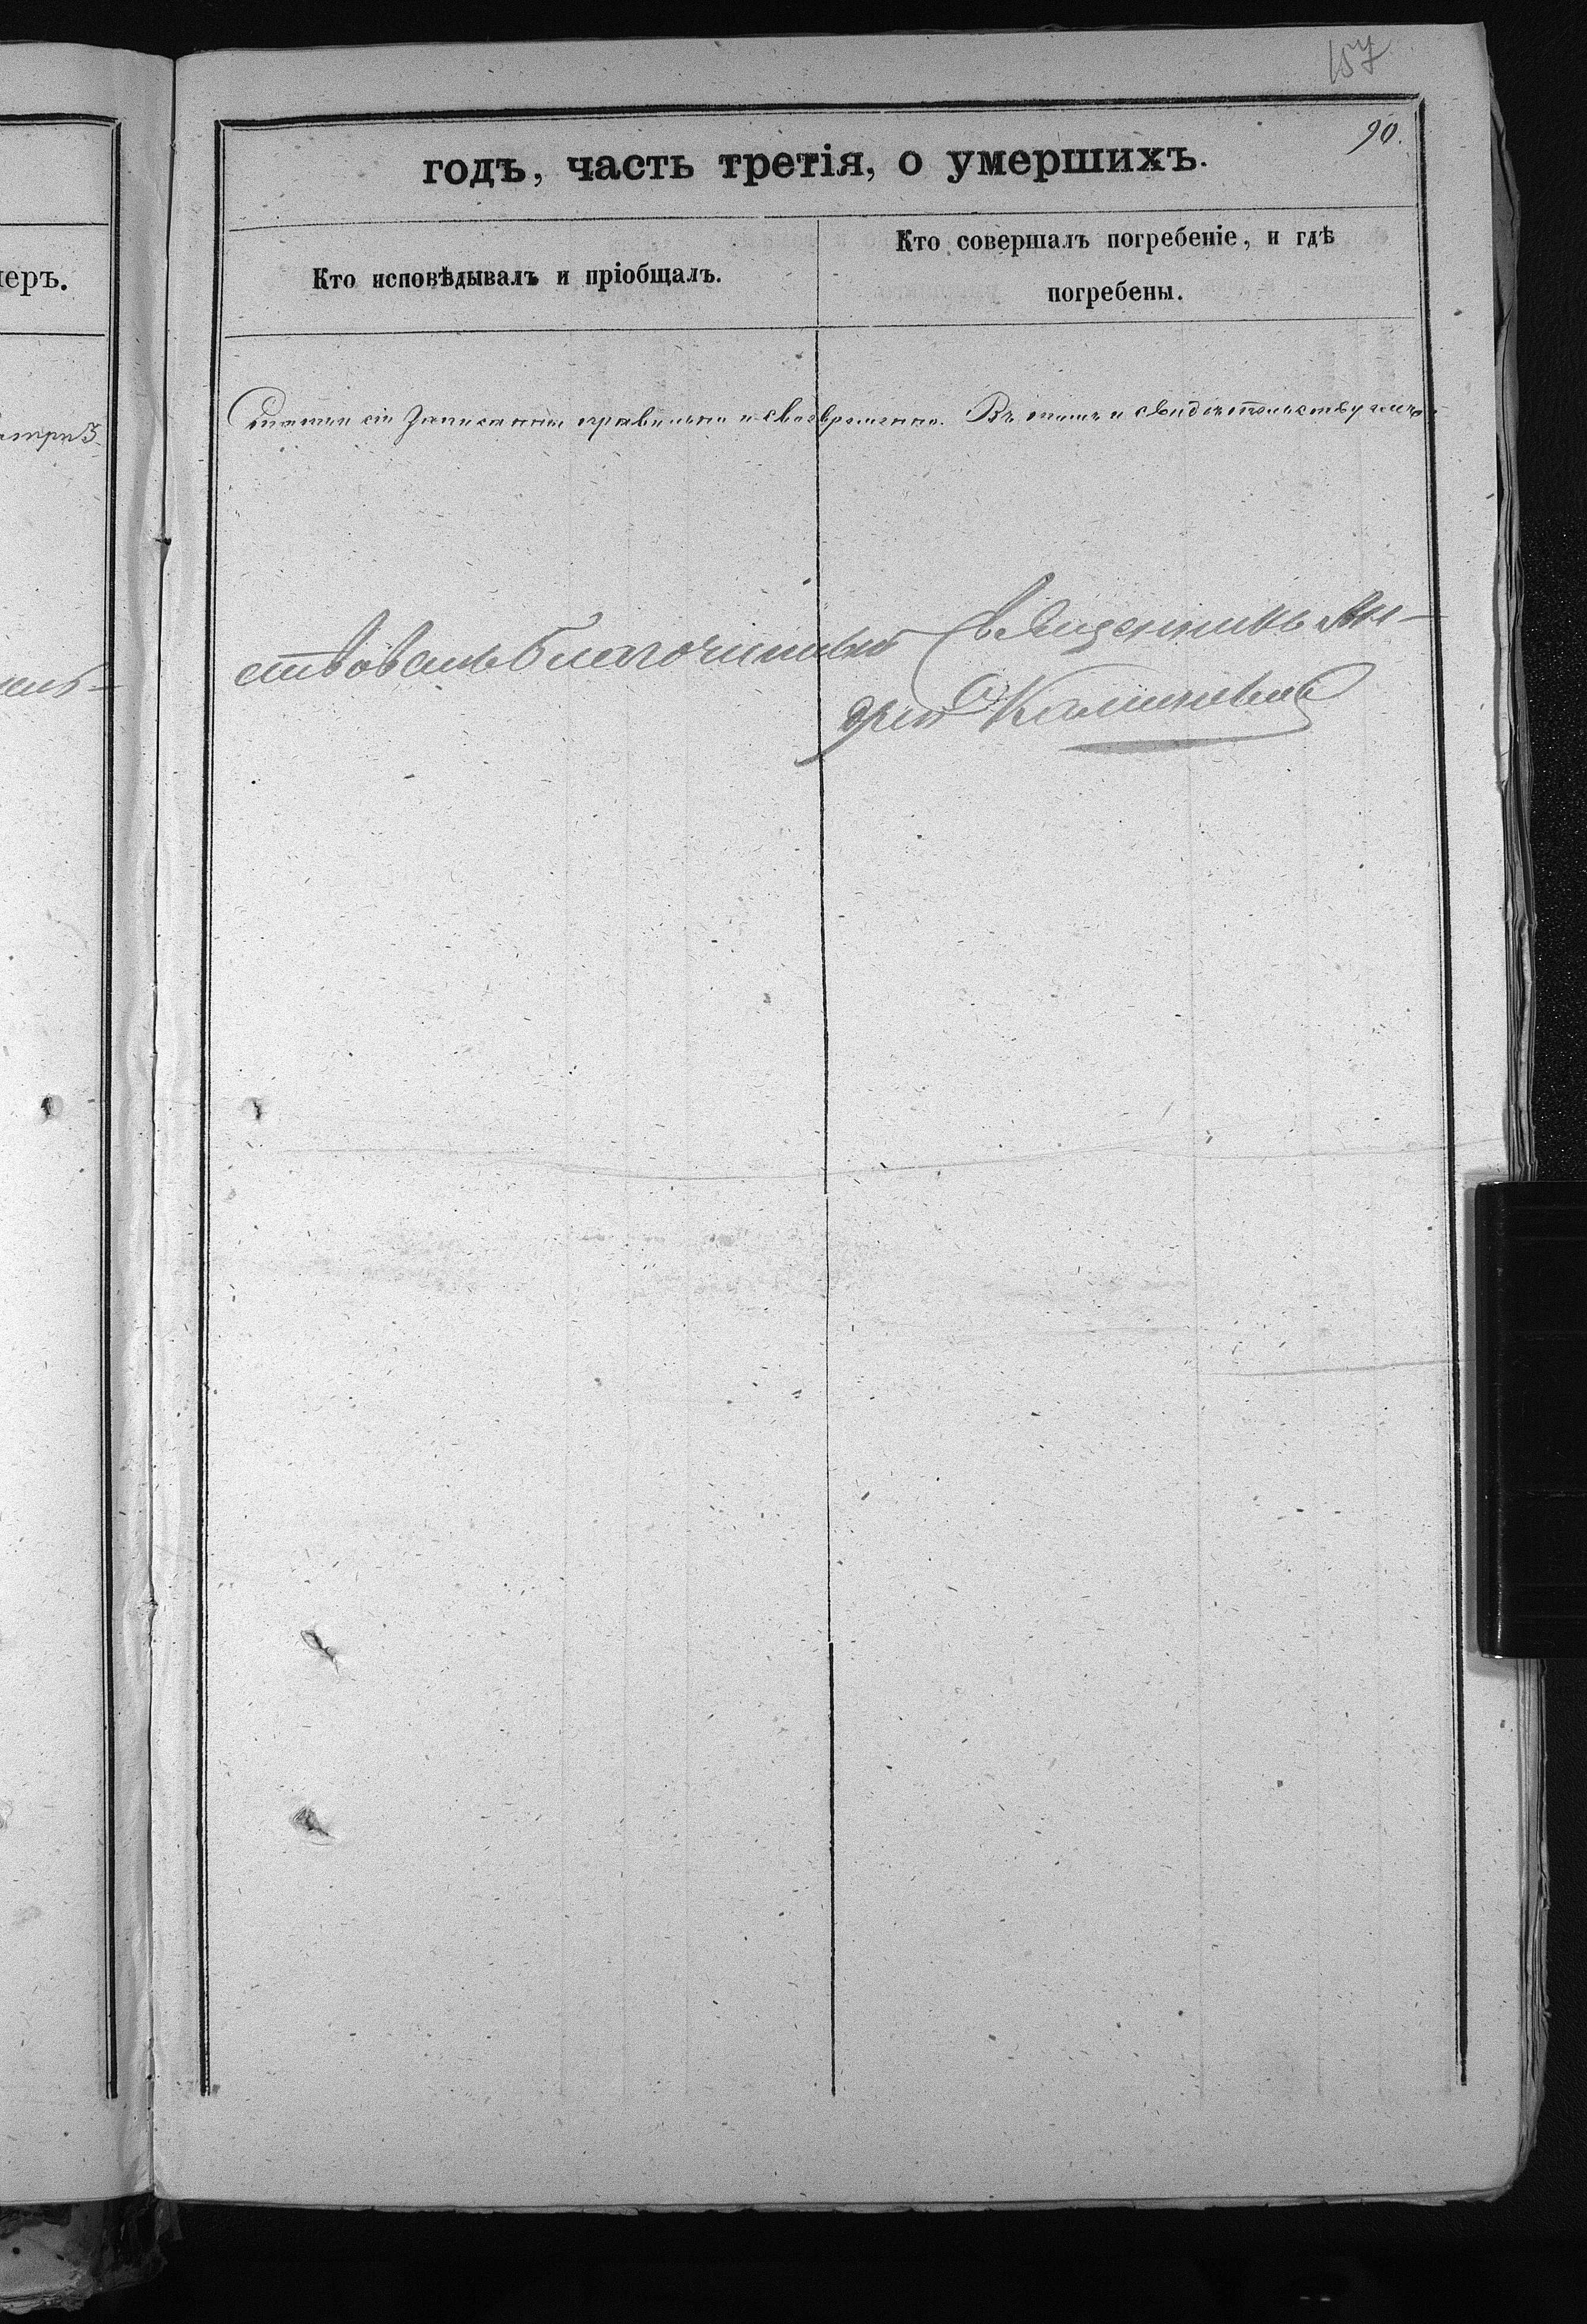 157
90.
годъ, часть третія, о умершихъ.
Кто исповѣдывалъ и пріобщалъ.
Кто совершалъ погребеніе, и гдѣ
погребены.
Статьи сіи записаны правильно и своевременно. Въ томъ и свидѣтельствуемъ
ствовалъ благочинный Священникъ Ан-
дрей Калиновскій
меръ.